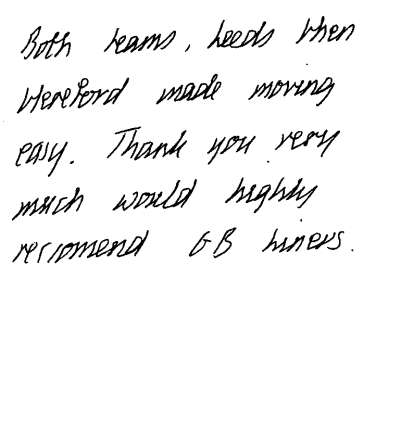 Both teams, Leeds then
Hereford made moving
easy. Thank you very
much would highly
reccomend GB Liners.